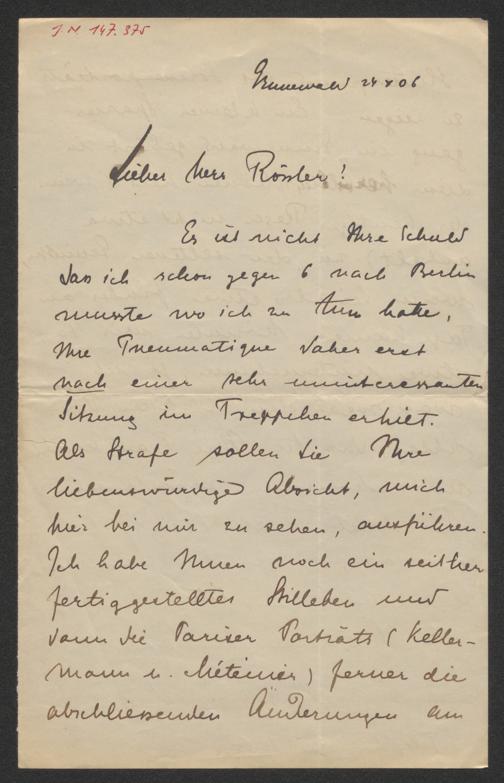 J. N. 147.375
Grunewald 24 X 06
Lieber Herr Rössler!
Es ist nicht Ihre Schuld
das ich schon gegen 6 nach Berlin
musste wo ich zu tun hatte,
Ihre Pneumatique daher erst
nach einer sehr uninteressanten
Sitzung im Treppchen erhielt.
Als Strafe sollen Sie Ihre
liebenswürdige Absicht, mich
hier bei mir zu sehen, ausführen.
Ich habe Ihnen noch ein seither
fertiggestelltes Stilleben und
dann die Pariser Porträts (Keller-
mann u. Méténier) ferner die
abschliessenden Änderungen am